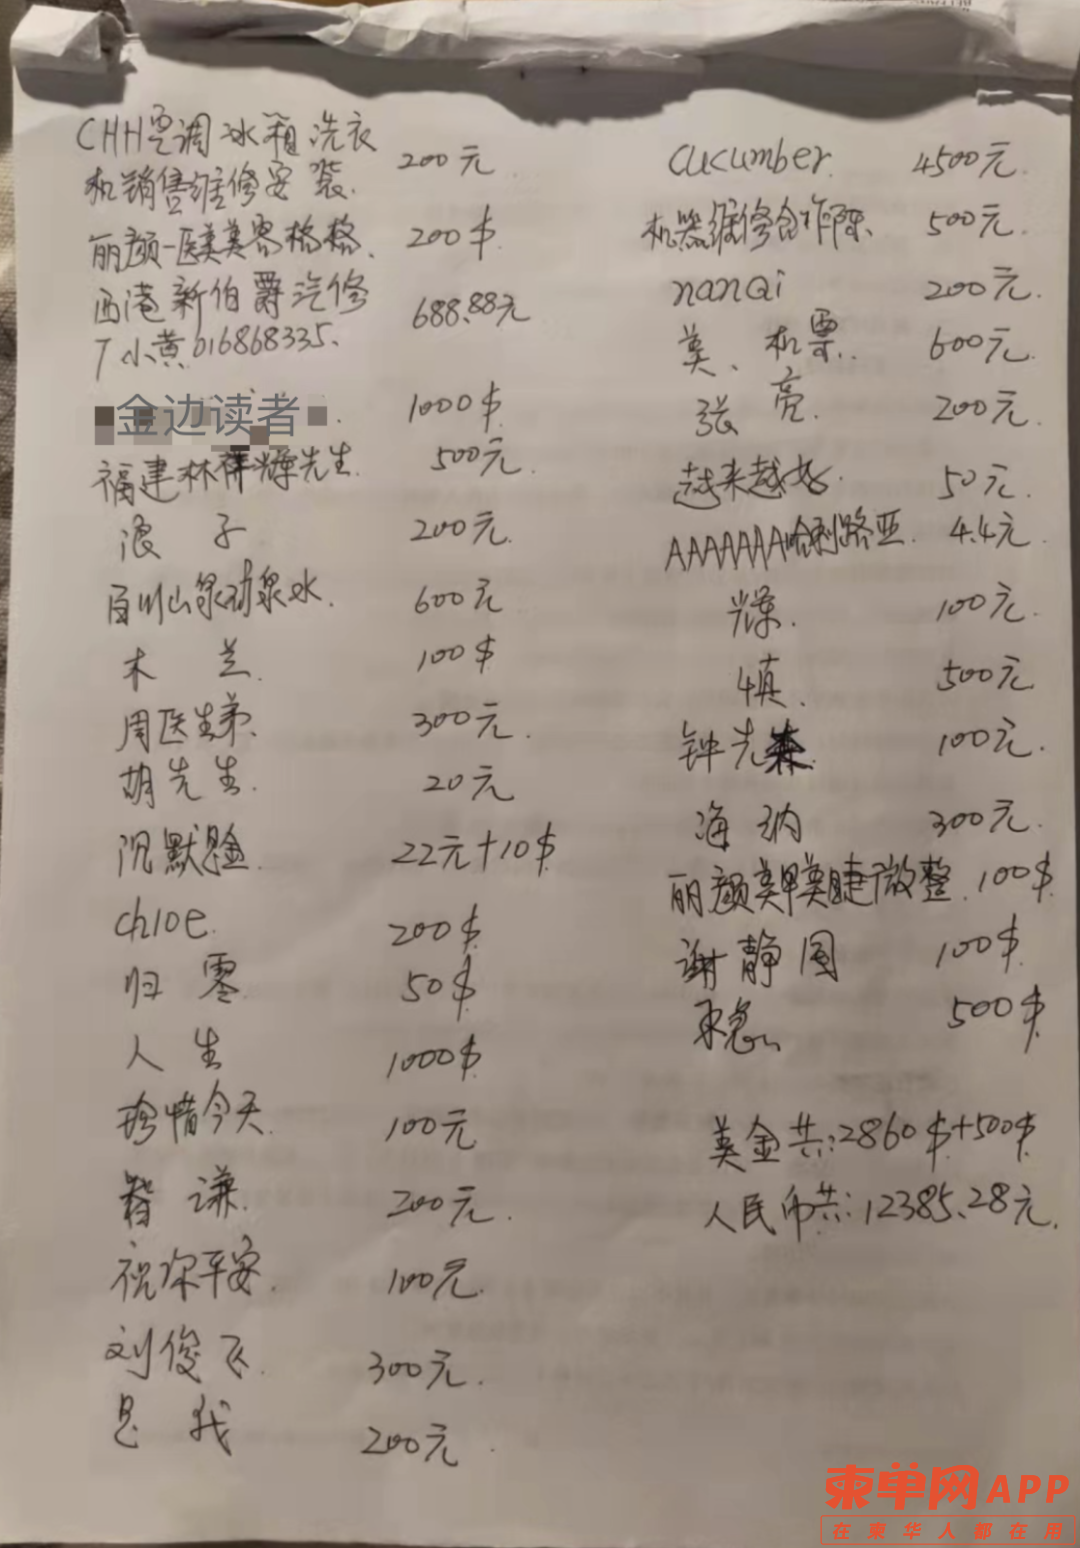 CHH空调冰箱洗衣
机销售维修安装. 200元
丽颜一医美美容格格、 200$
西港新伯爵汽修
丁小黄.016868335、 688.88元
金边读者. 1000$
福建林祥辉先生. 500元.
浪子 200元.
百川山泉矿泉水. 600元
木兰. 100$
周医生弟、 300元.
胡先生. 20元
沉默是金. 22元+10$
chloe. 200$
归零. 50$
人生 1000$
珍惜今天. 100元
智谦. 200元.
祝你平安. 100元.
刘俊飞. 300元.
是我 200元.
Cucumber. 4500元.
机器维修合作陈、 500元.
nanQi 200元.
美、机票. 600元.
张亮. 200元.
越来越好. 50元.
AAAAAAA哈利路亚. 4.4元.
燦. 100元.
慎. 500元.
钟先森. 100元.
海纳 300元.
丽颜美甲美睫微整. 100$
谢静国 100$
500$
美金共:2860$+500$
人民币共:12385.28元.
柬单网APP
在柬华人都在用